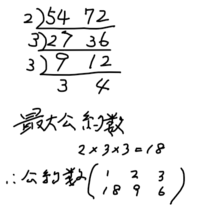 2)54 72
3)27 36
3)9 12
3 4
最大公約数
2×3×3=18
∴公約数(1 2 3
18 9 6)